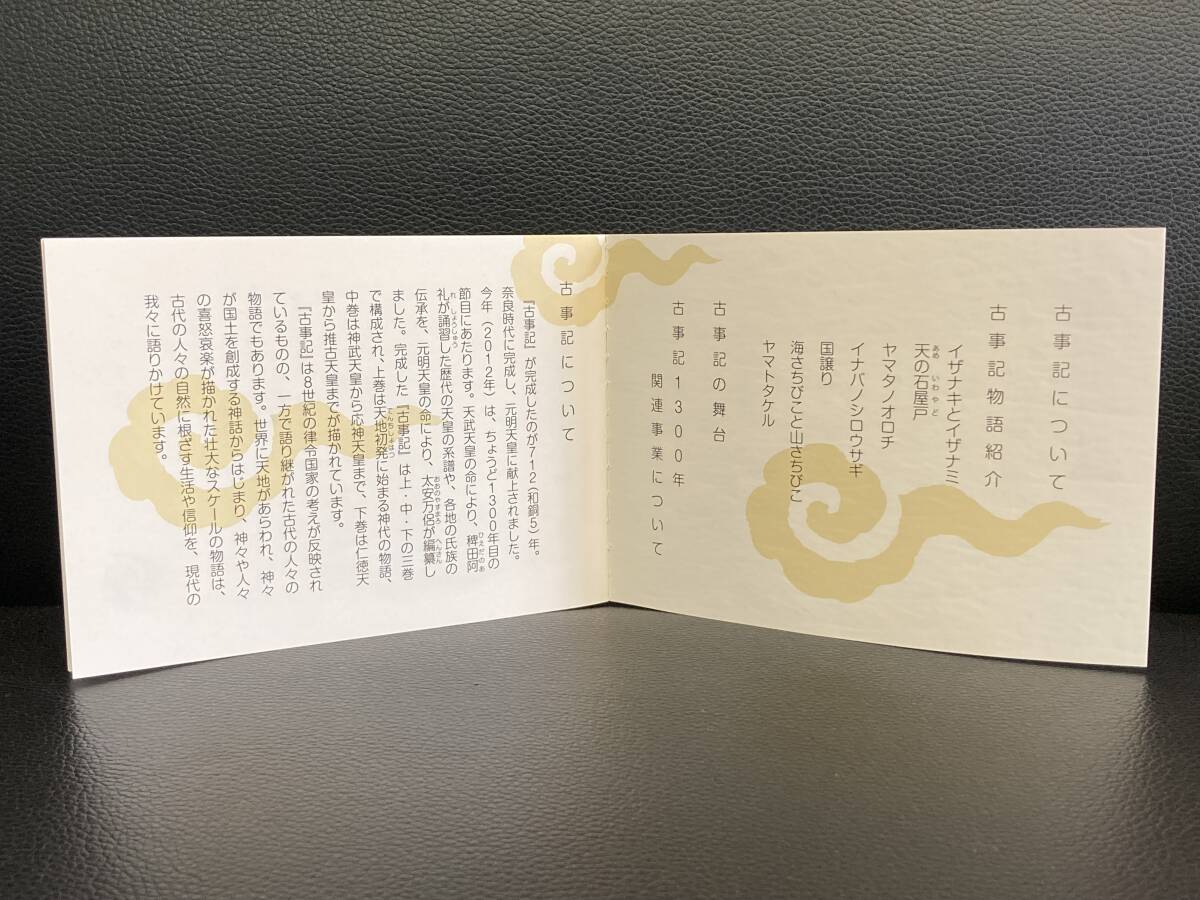 古事記について
古事記物語紹介
イザナキとイザナミ
天の石屋戸
あめ いわやど
ヤマタノオロチ
イナバノシロウサギ
国譲り
海さちびこと山さちびこ
ヤマトタケル
古事記の舞台
古事記1300年
関連事業について
古事記について
『古事記』が完成したのが712（和銅5）年。
奈良時代に完成し、元明天皇に献上されました。
今年（2012年）は、ちょうど1300年目の
節目にあたります。天武天皇の命により、稗田阿
ひえだのあ
礼が誦習した歴代の天皇の系譜や、各地の氏族の
れ しょうしゅう
伝承を、元明天皇の命により、太安万侶が編纂し
おおのやすまろ へんさん
ました。完成した『古事記』は上・中・下の三巻
で構成され、上巻は天地初発に始まる神代の物語、
てんちしょはつ
中巻は神武天皇から応神天皇まで、下巻は仁徳天
皇から推古天皇までが描かれています。
『古事記』は8世紀の律令国家の考えが反映され
ているものの、一方で語り継がれた古代の人々の
物語でもあります。世界に天地があらわれ、神々
が国土を創成する神話からはじまり、神々や人々
の喜怒哀楽が描かれた壮大なスケールの物語は、
古代の人々の自然に根ざす生活や信仰を、現代の
我々に語りかけています。